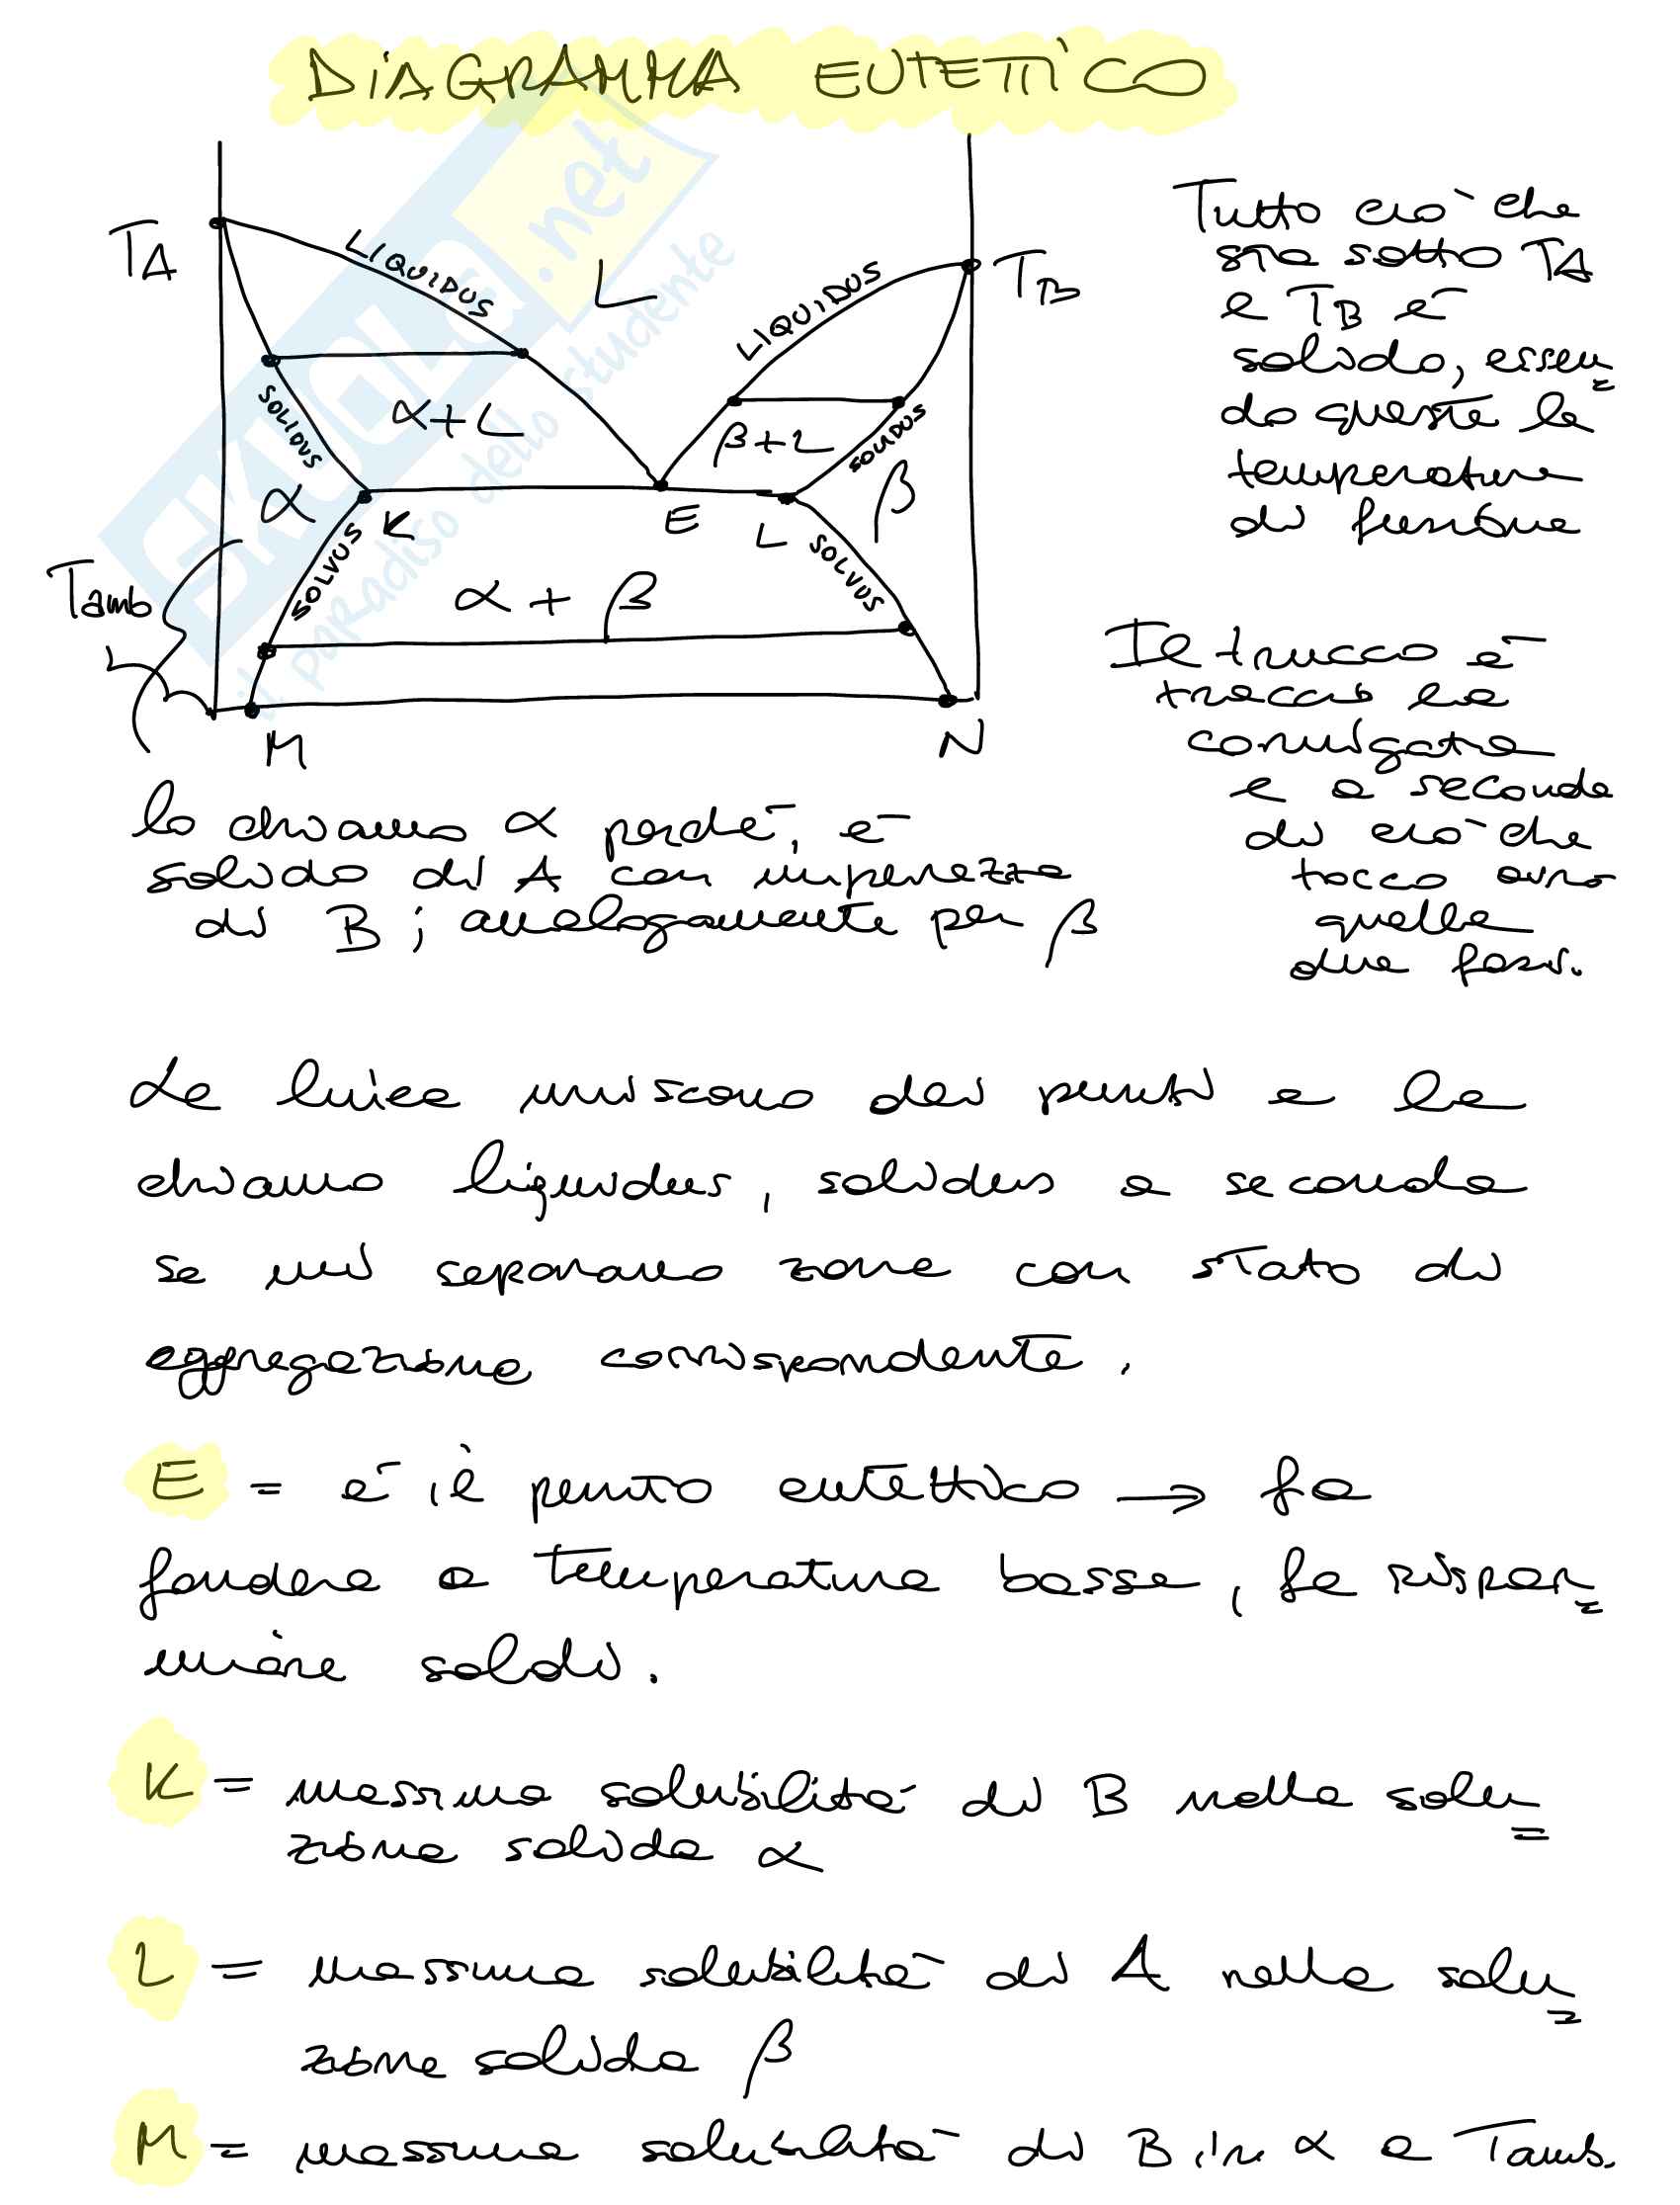 DIAGRAMMA EUTETTICO
TA
LIQUIDUS
L
LIQUIDUS
TB
SOLIDUS
α+L
β+L
SOLIDUS
α
K
E
L
β
Tamb
SOLVUS
α + β
SOLVUS
M
N
SKUOLA.net
il paradiso dello studente
Tutto ciò che
sta sotto TA
e TB è
solido, essen=
do queste le
temperature
di fusione
Il trucco è
traccio la
coniugata
e a seconda
di ciò che
tocco avrò
quelle
due fasi.
lo chiamo α perché, è
solido di A con impurezze
di B; analogamente per β
Le linee uniscono dei punti e le
chiamo liquidus, solidus a seconda
se mi separano zone con stato di
aggregazione corrispondente.
E = è il punto eutettico → fa
fondere a temperature basse, fa rispar=
miare soldi.
K = massima solubilità di B nella solu=
zione solida α
L = massima solubilità di A nella solu=
zione solida β
M = massima solubilità di B in α a Tamb.